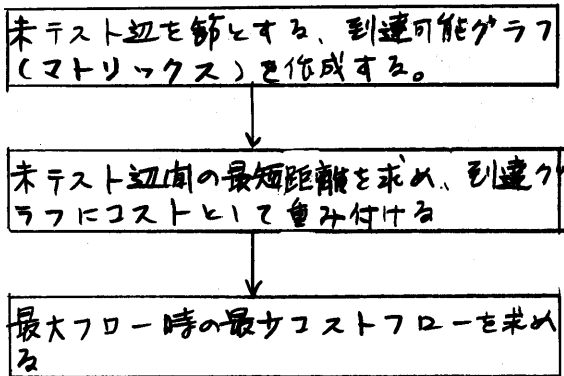 未テスト辺を節とする、到達可能グラフ
(マトリックス)を作成する。
未テスト辺間の最短距離を求め、到達グ
ラフにコストとして重み付ける
最大フロー時の最少コストフローを求め
る